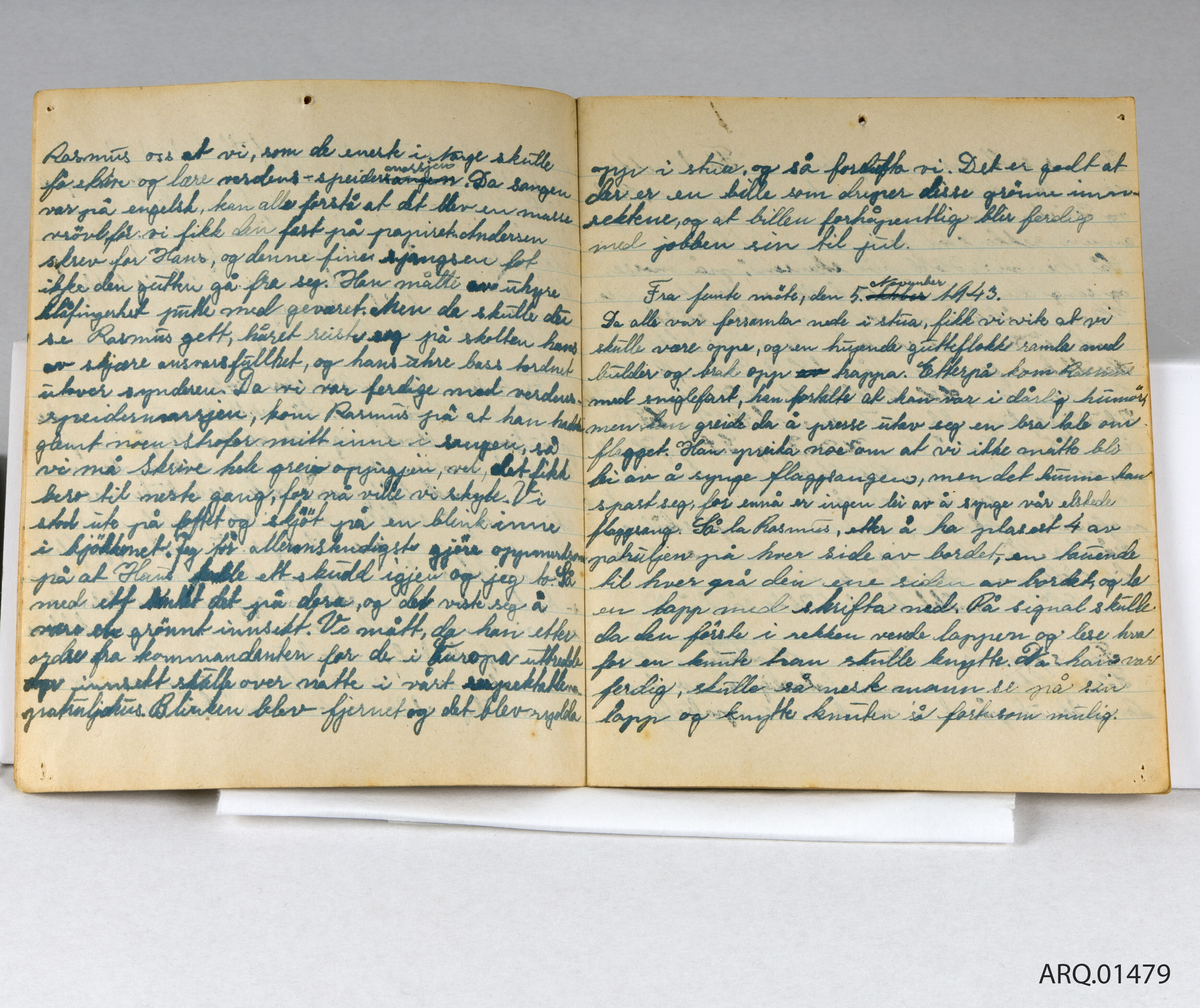 Rasmus oss at vi, som de eneste i Norge skulle
få skrive og lære verdens-speidersangen marsjen. Da sangen
var på engelsk, kan alle forstå at det blev en masse
vrövl, för vi fikk den fast på papiret. Andersen
skrev for Hans, og denne fine sjangsen lot
ikke den gutten gå fra seg. Han måtte uhyre
blåfingerhet putle med geværet. Men da skulle dere
se Rasmus gett, håret reiste seg på skolten hans
av skjære ansvarsfyllthet, og hans ähre bass tordnet
utover synderen. Da vi var ferdige med verdens-
speidermarsjen, kom Rasmus på at han hadde
glemt noen strofer mitt inne i sangen, så
vi må skrive hele greia oppigjen, vel, det fikk
bero til neste gang, for nå ville vi skyte. Vi
stod ute på loftet og skjöt på en blink inne
i kjökkenet. Jeg får allernaadigst gjöre oppmerksom
på at Hans hadde ett skudd igjen og jeg to. Så
med ett det på döra, og det viste seg å
være en grönnt innsekt. Vi måtte, da han etter
ordre fra kommandanten for de i Europa utbredte
innsekt skulle over natte i vårt
patruljehus. Blinken blev fjernet og det blev ryddet
opp i stua, og så fordufta vi. Det er godt at
der er en bille som dreper disse grönne inn-
sektene, og at billen forhåpentlig blir ferdig
med jobben sin til jul.
Fra femte möte, den 5. Oktober November 1943.
Da alle var forsamla nede i stua, fikk vi vite at vi
skulle være oppe, og en hujende gutteflokk ramla med
bulder og brak opp trappa. Etterpå kom Rasmus
med sneglefart, han fortalte at han var i dårlig humör,
men han greide da å presse utav seg en bra tale om
flagget. Han preika noe om at vi ikke måtte bli
lei av å synge flaggsangen, men det kunne han
spart seg, for ennå er ingen lei av å synge vår elskede
flaggsang. Så la Rasmus, etter å ha plasert 4 av
patruljen på hver side av bordet, en tauende
til hver på den ene siden av bordet, og la
en lapp med skrifta ned. På signal skulle
da den förste i rekken vende lappen og lese hva
for en knute han skulle knytte. Da han var
ferdig, skulle så neste mann se på sin
lapp og knytte knuten så fort som mulig.
ARQ.01479